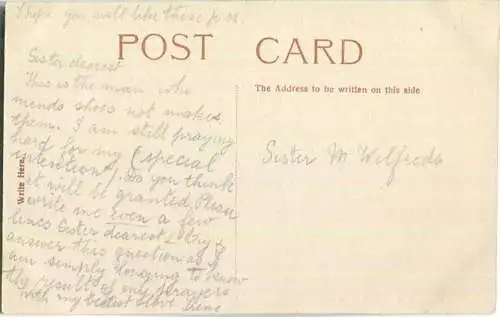 I hope you will like these p.cs.
POST CARD
Sister dearest
This is the man who
mends shoes not makes
them. I am still praying
hard for my (special
intention). Do you think
it will be granted Please
write me even a few
lines Sister dearest to
answer this question as I
am simply longing to know
the result of my prayers
with my best love
Write Here.
The Address to be written on this side
Sister M Wolfreda